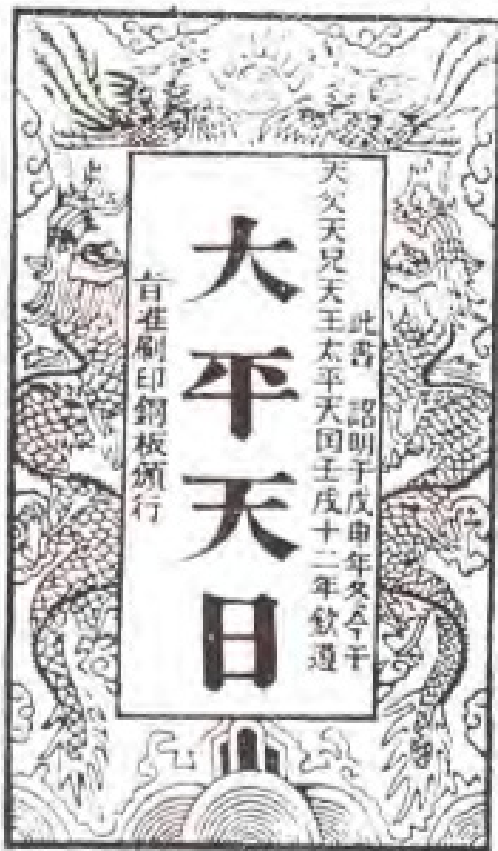 此書 詔明于戊申年冬今于
天父天兄天王太平天囯壬戌十二年欽遵
大平天日
旨准刷印銅板頒行